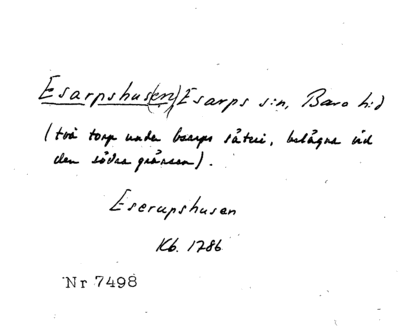 Esarpshus(en) Esarps s:n, Bara h:d
(två torp under Esarps säteri, belägna vid
den södra gränsen).
Eserupshusen
Kb. 1786
Nr 7498